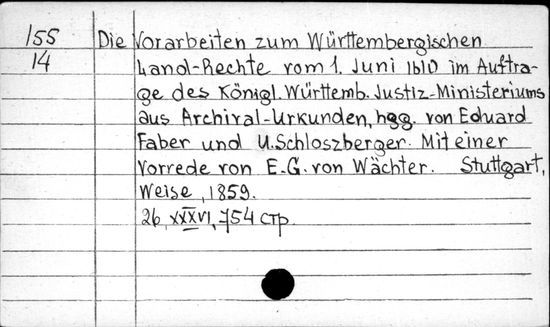 155 Die Vorarbeiten zum Württembergischen
14 Land-Rechte vom 1. Juni 1610 im Auftra-
ge des Königl. Württemb. Justiz-Ministeriums
aus Archival-Urkunden, hgg. von Eduard
Faber und U. Schloszberger. Mit einer
Vorrede von E. G. von Wächter. Stuttgart,
Weise, 1859.
26, XXXVI, 754 стр.